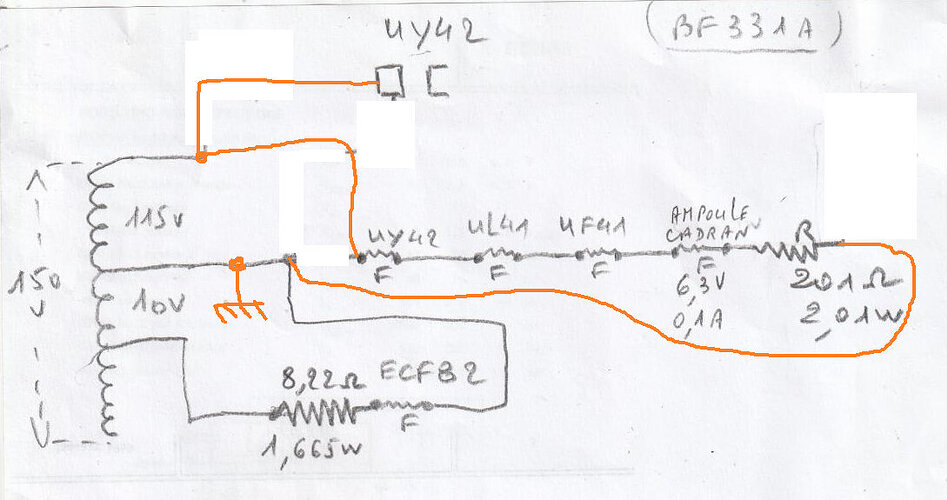 UY42
(BF331A)
115V
UY42
F
UL41
UF41
F
AMPOULE
CADRAN
F
6,3V
0,1A
R
201Ω
2,01W
150
V
10V
8,22Ω
1,665W
ECF82
F